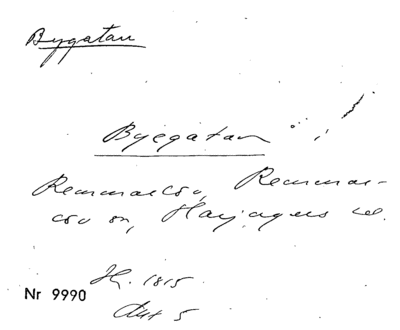 Bygatan
Byegatan
Remmarlöv, Remmar-
löv sn, Harjagers hd.
Hg. 1815
Nr 9990
Akt 5